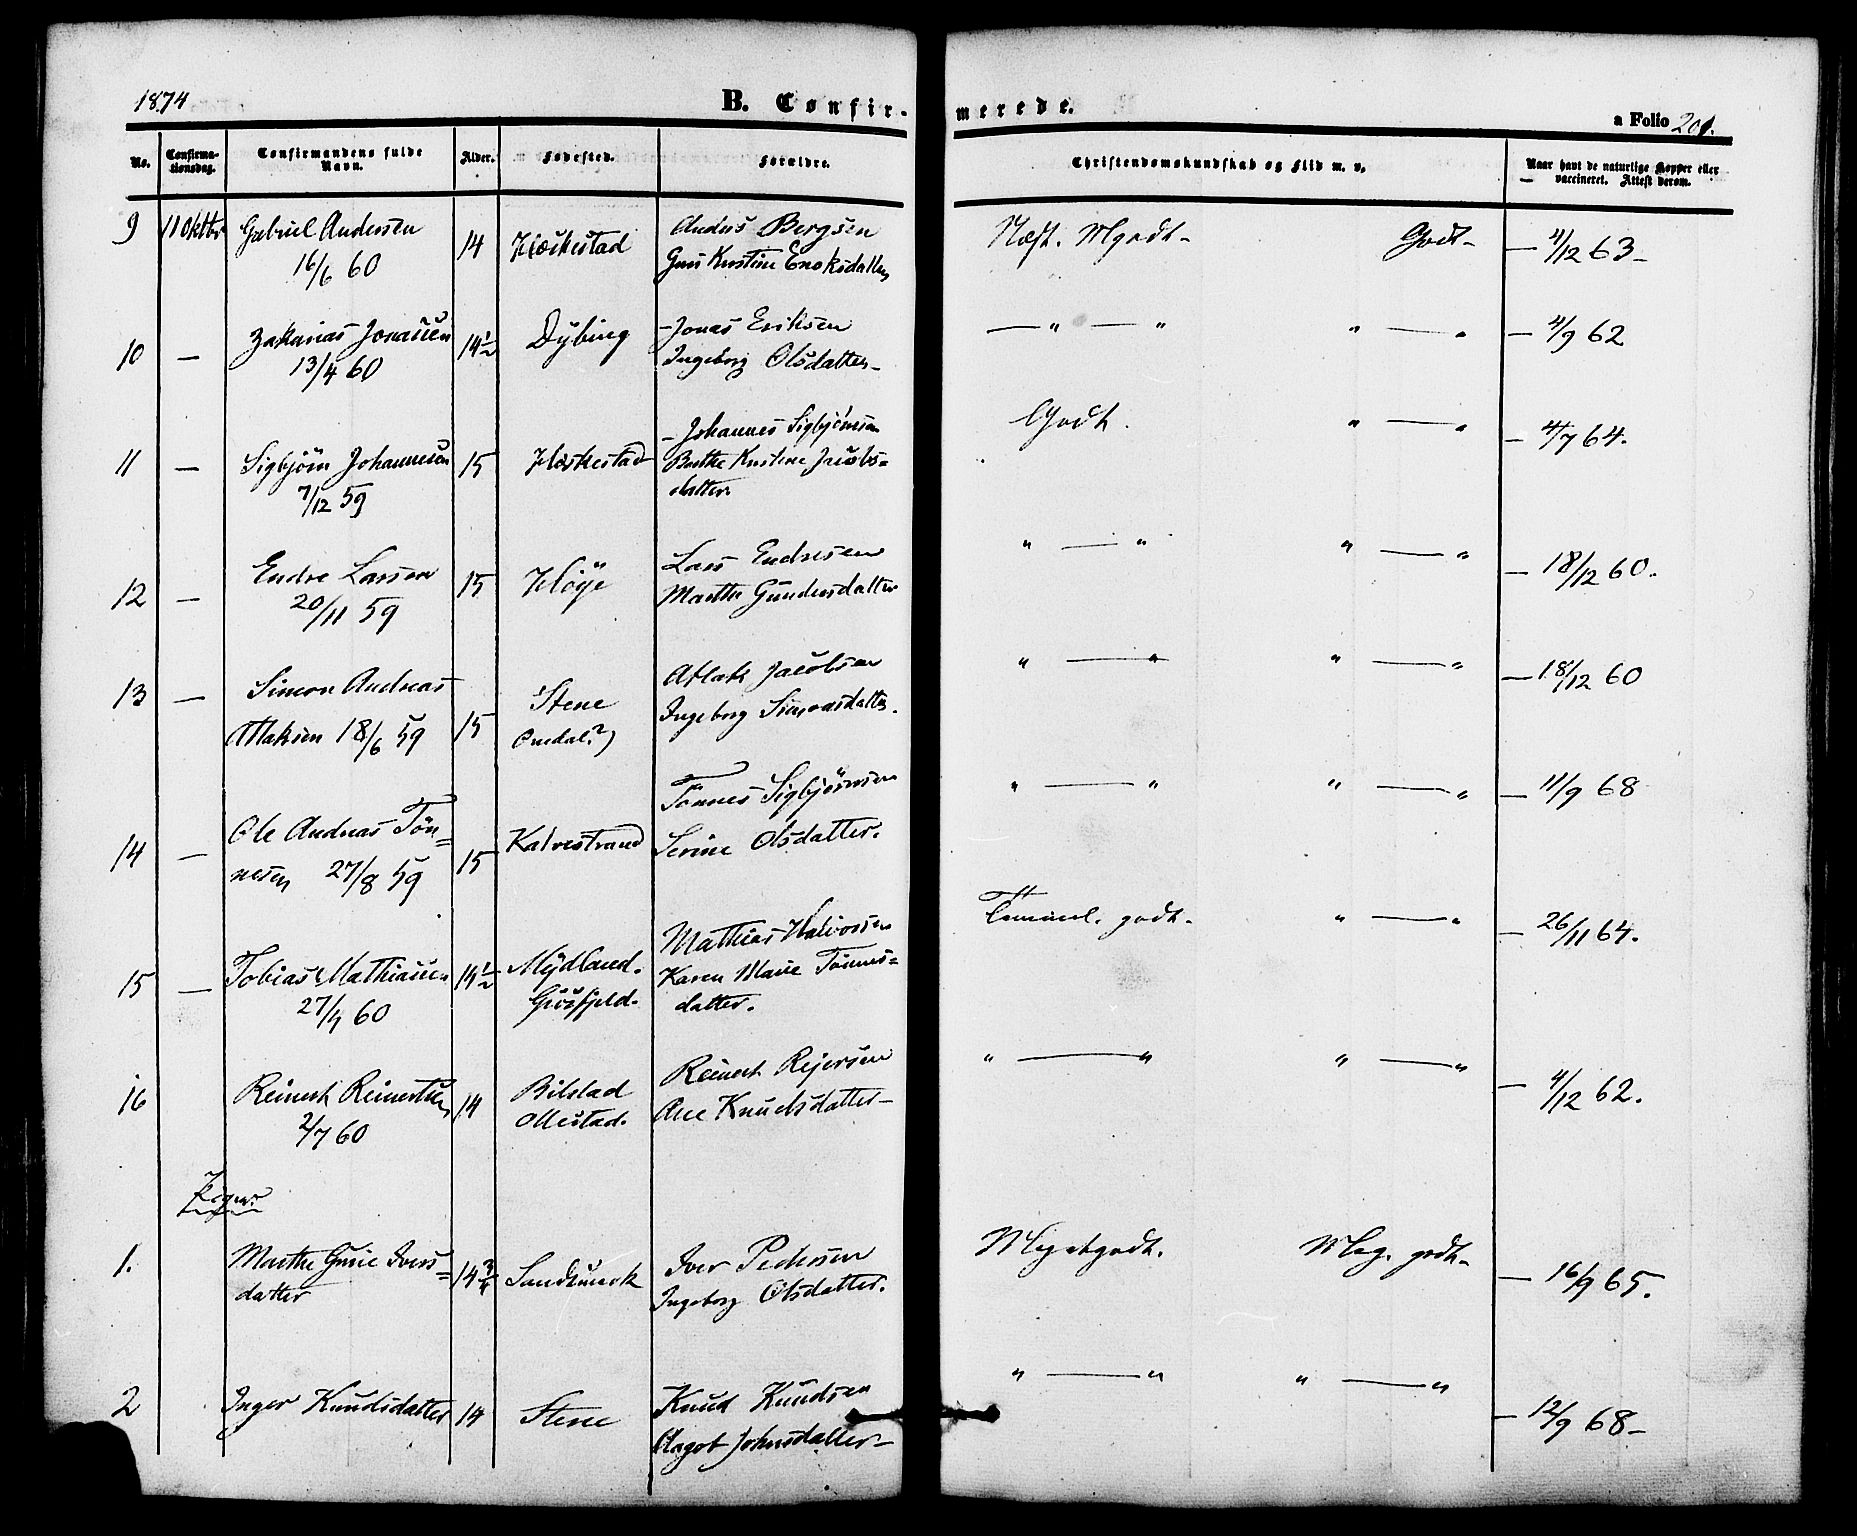 1874
B. Confirmerede.
a Folio 201.
No.
Confirmationsdag.
Confirmandens fulde Navn.
Alder.
Fødested.
Forældre.
Christendomskundskab og Flid m. v.
Naar havt de naturlige Kopper eller vaccineret. Attest derom.
9 11 Oktbr Gabriel Andersen 14 Anders Bergsen Næst. Mgodt- Godt- — 4/12 63-
16/6 60 Kirstine Enoksdatter
10 — Zakarias Jonassen 14½ Dybing Jonas Eriksen — " — " " — " — 4/9 62
13/4 60 Ingeborg Olsdatter
11 — Sigbjörn Johannesen 15 Johannes Sigbjörnsen Godt. " — " — 4/7 64.
7/12 59 Kirstine Jacobs=
datter
12 — Endre Larsen 15 Höye Lars Endresen " — " " — " — 18/12 60.
20/11 59 Marthe Gundersdatter
13 — Simon Andreas 15 Stene Atlak Jacobsen " — " " — " — 18/12 60
Atlaksen 18/6 59 Omdal?) Ingeborg Simonsdatter.
14 — Ole Andreas Tön= 15 Kalvestrand Tönnes Sigbjörnsen " — " " — " — 11/9 68
nesen 27/8 59 Serine Olsdatter.
15 — Tobias Mathiassen 14½ Mydland. Mathias Halvorsen godt. " — " — 26/11 64.
27/4 60 Karen Marie Tönnes=
datter.
16 Reinert Reinertsen 14 Bilstad Reinert Rejersen " — " " — " — 4/12 62.
2/7 60 Ollestad. Ane Knudsdatter-
Piger
1. Marthe Gurie Ivers= 14¾ Iver Pedersen Megetgodt. Meg. godt. — 16/9 65.
datter Ingeborg Olsdatter.
2 Inger Knudsdatter 14 Stene Knud Knudsen " — " " — " — 12/9 68-
Aagot Johnsdatter-